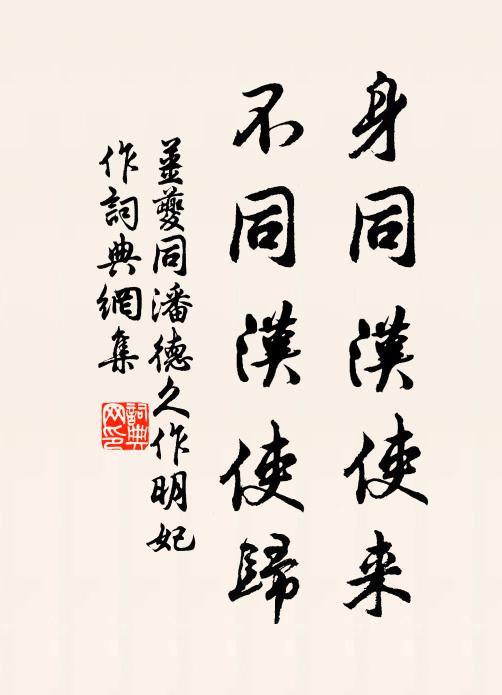 身同漢使来
不同漢使歸
姜夔同潘德久作明妃
作詞典網集
詞典网印